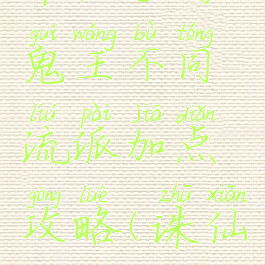 guǐ wáng bù tóng
鬼王不同
liú pài jiā diǎn
流派加点
gōng lüè zhū xiān
攻略(诛仙